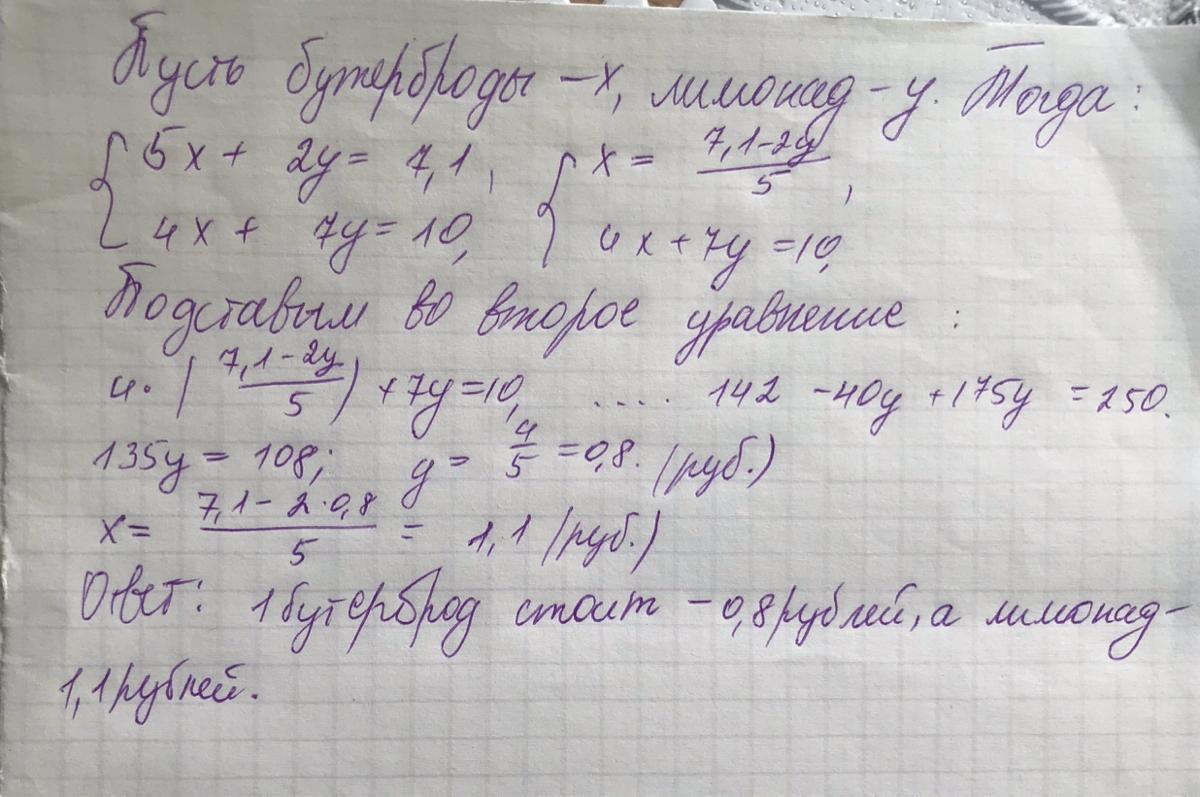 Пусть бутерброды – х, лимонад – у. Тогда:
{ 5х + 2у = 7,1, { х = (7,1–2у)/5,
4х + 7у = 10, 4х + 7у = 10,
Подставым во второе уравнение :
4· ( (7,1–2у)/5 ) + 7у = 10, .... 142 – 40у + 175у = 250.
135у = 108; у = 4/5 = 0,8. (руб.)
х = (7,1 – 2·0,8)/5 = 1,1 (руб.)
Ответ: 1 бутерброд стоит – 0,8 рублей, а лимонад –
1,1 рублей.